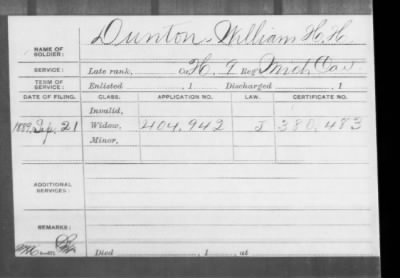 NAME OF SOLDIER: Dunton William H. H.
SERVICE: Late rank, Co. H. 9 Reg't Mich Cav
TERM OF SERVICE: Enlisted , 1 Discharged , 1
DATE OF FILING. CLASS. APPLICATION NO. LAW. CERTIFICATE NO.
Invalid,
1889 Sep. 21 Widow, 404,942 J 380,483
Minor,
ADDITIONAL SERVICES:
REMARKS:
Died , 1 , at